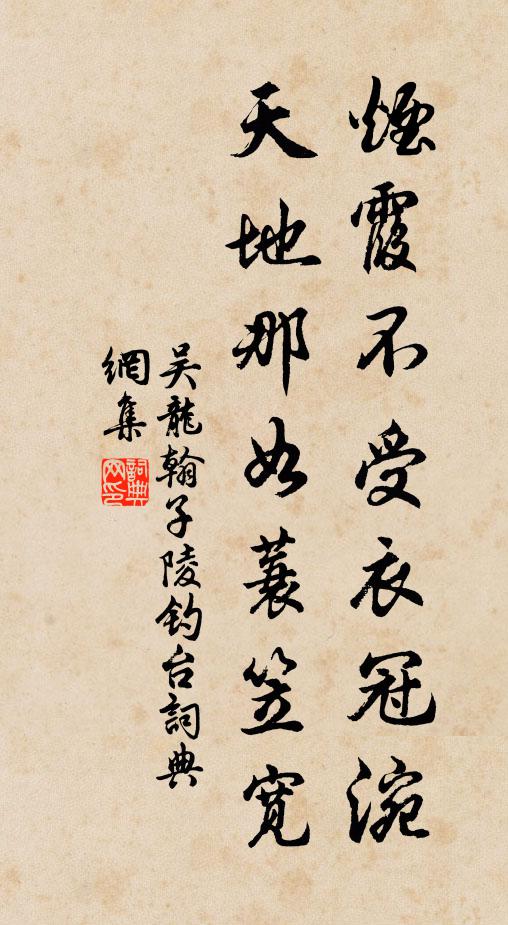 煙霞不受衣冠涴
天地那如蓑笠寬
吴龍翰子陵钓台詞典
網集
詞典
网印